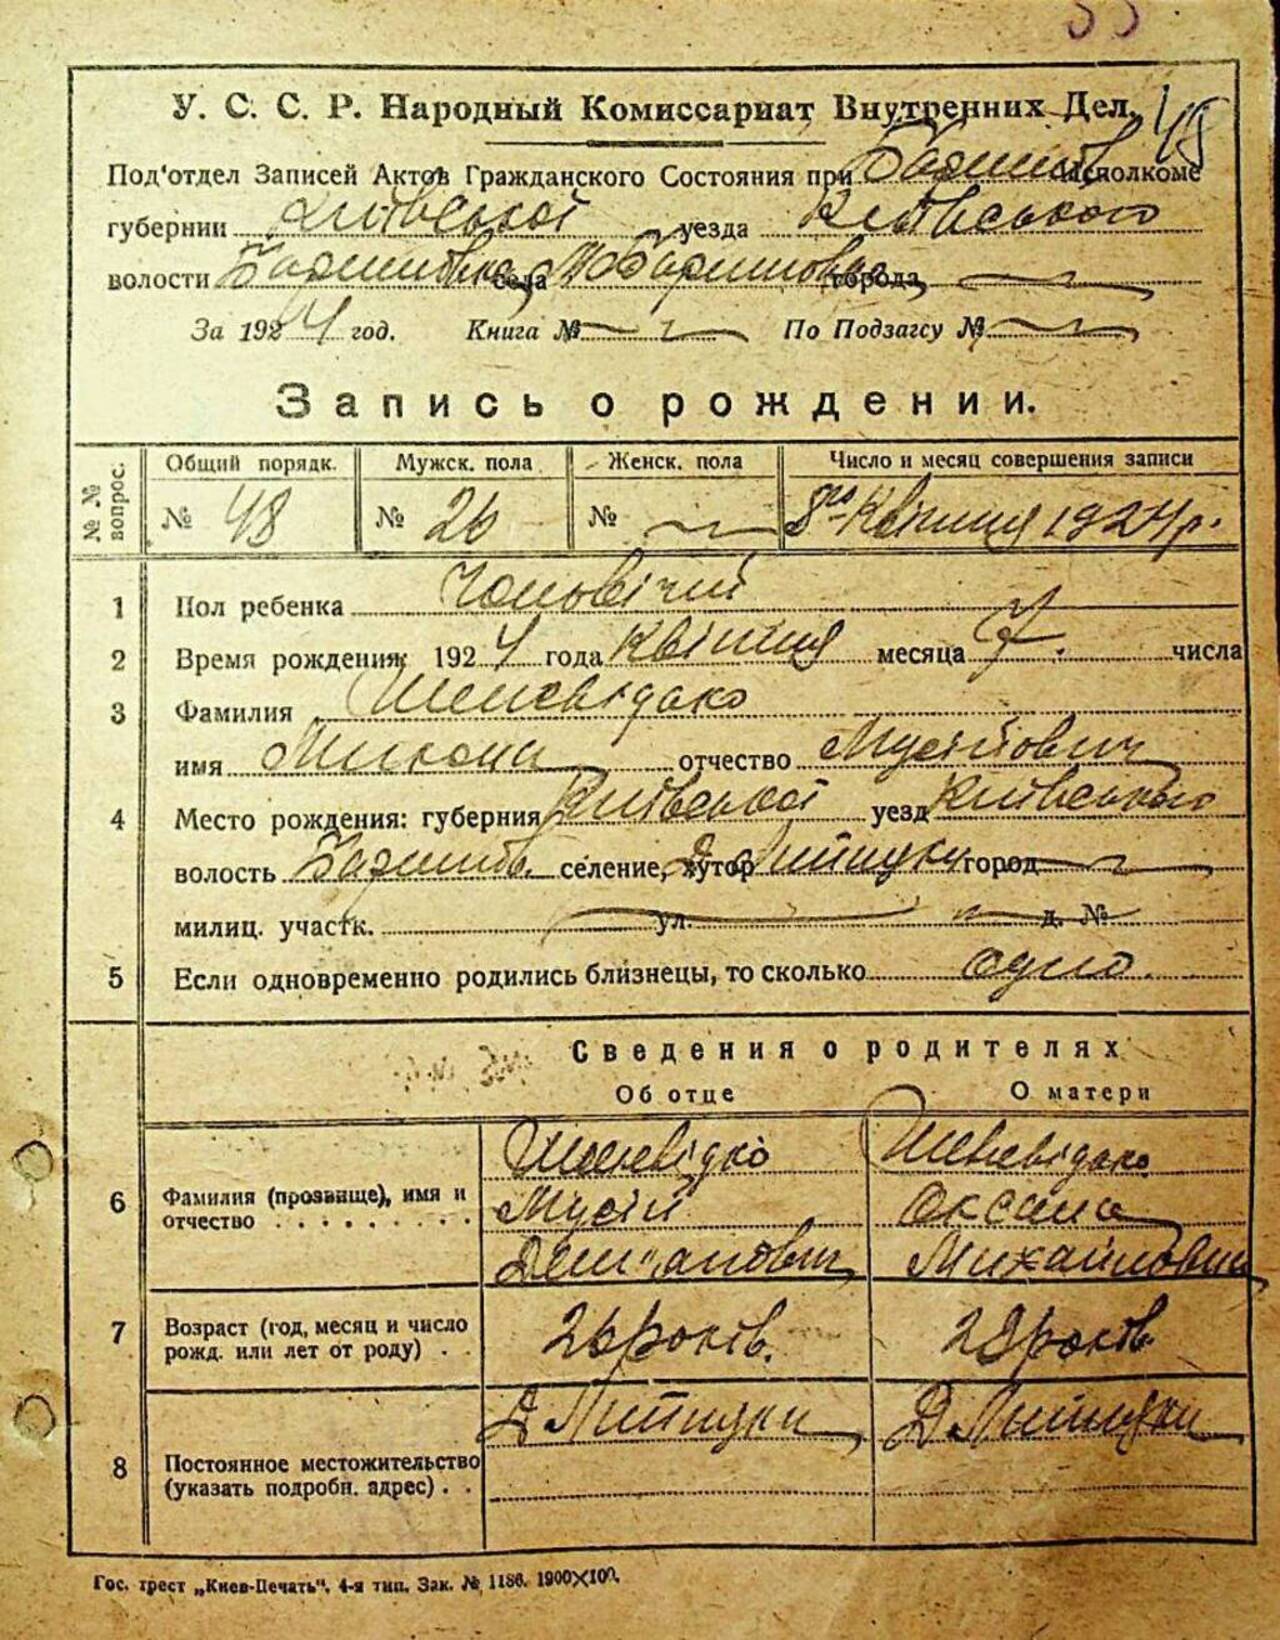 У. С. С. Р. Народный Комиссариат Внутренних Дел.
48
Под‘отдел Записей Актов Гражданского Состояния при Баришів исполкоме
губернии Київської уезда Київського
волости Баришівка села М Баришівка города
За 1924 год. Книга № По Подзагсу №
Запись о рождении.
№ № вопрос. Общий порядк. Мужск. пола Женск. пола Число и месяц совершения записи
№ 48 № 26 № 8го Квітня 1924 р.
1 Пол ребенка Чоловічий
2 Время рождения: 1924 года Квітня месяца 7. числа
3 Фамилия
имя Микола отчество Мусійович
4 Место рождения: губерния Київської уезд Київського
волость Баришів. селение, хутор город
милиц. участк. ул. д. №
5 Если одновременно родились близнецы, то сколько одно.
Сведения о родителях
Об отце О матери
6 Фамилия (прозвище), имя и отчество . . . . . . . . .
Мусій Оксана
7 Возраст (год, месяц и число рожд. или лет от роду) . . 26 років. 28 років.
8 Постоянное местожительство (указать подробн. адрес) . .
Гос. трест „Киев-Печать“. 4-я тип. Зак. № 1186. 1900×100.